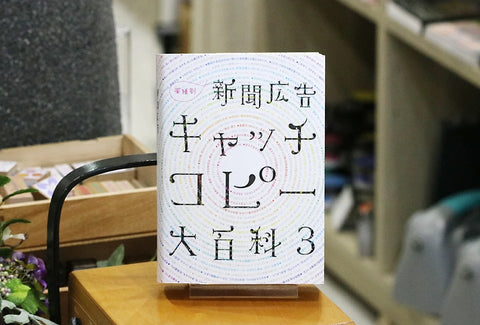 業種別
新聞広告
キャッチ
コピー
大百科3